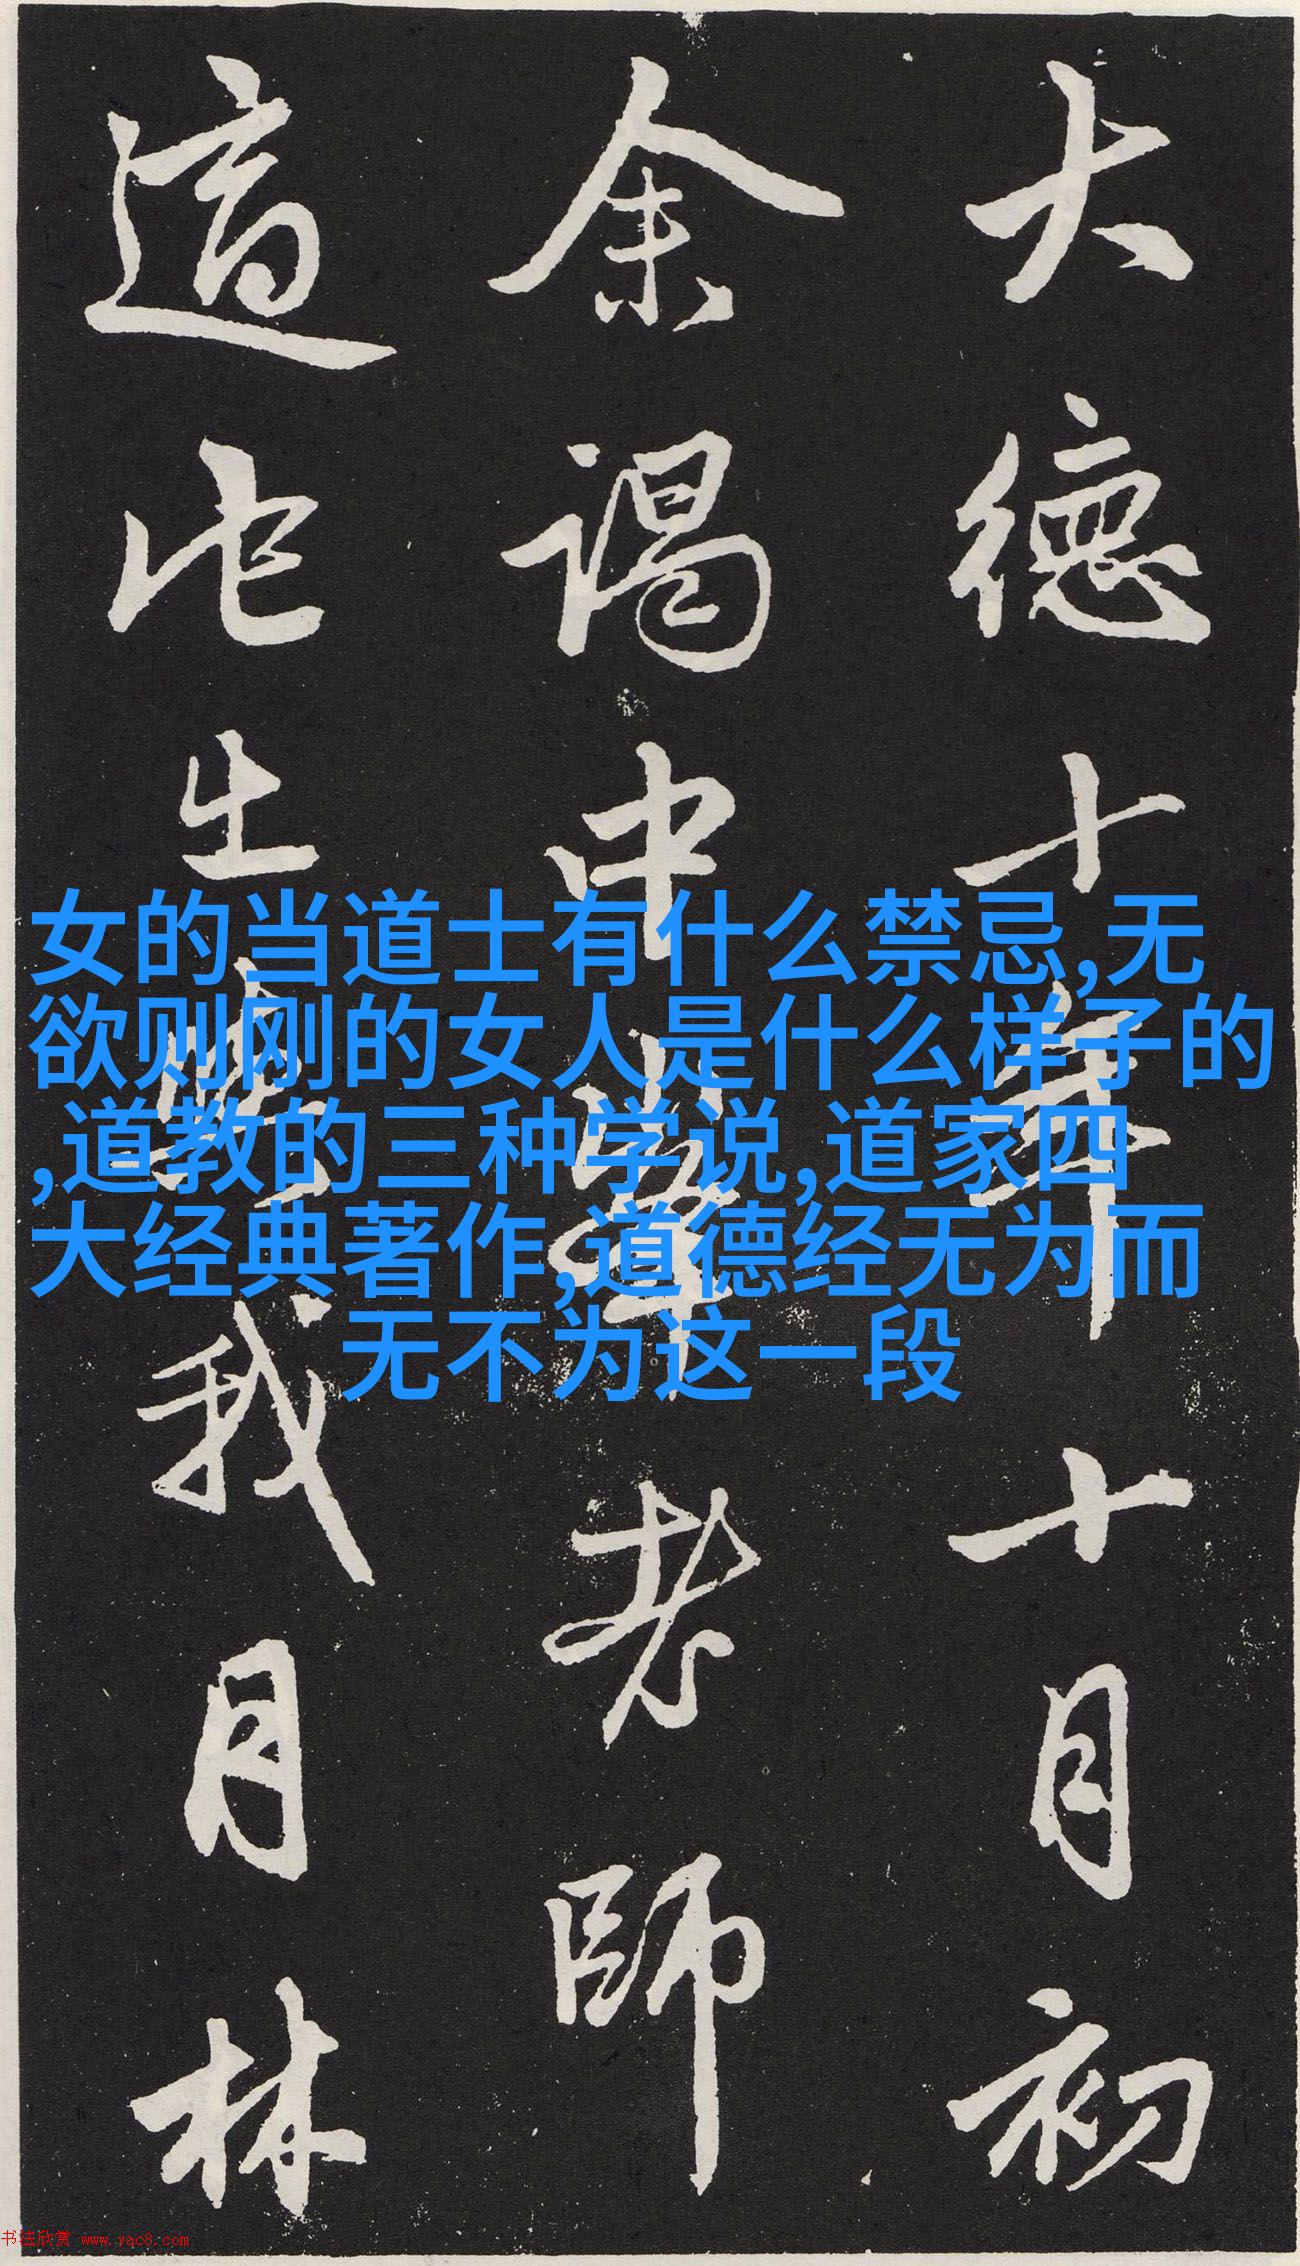 大德十年十月初
余謁中峯老師
適此出與我月林
女的当道士有什么禁忌,无
欲则刚的女人是什么样子的
,道教的三种学说,道家四
大经典著作,道德经无为而
无不为这一段
书法欣赏 www.yac8.com